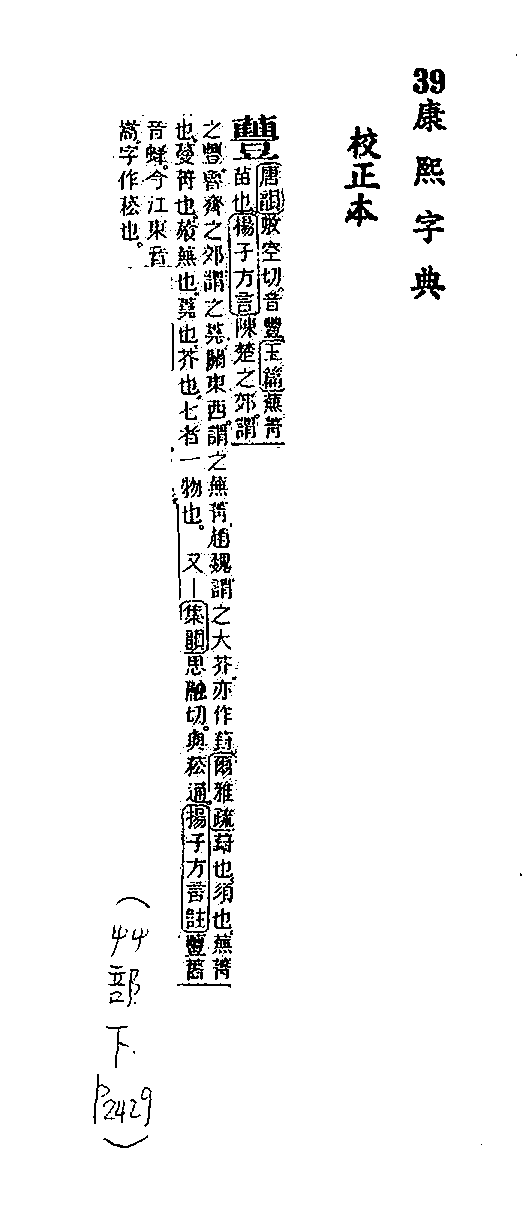 39康熙字典
校正本
蘴
唐韻敷空切音豐玉篇蕪菁
苗也揚子方言陳楚之郊謂
之蘴魯齊之郊謂之蕘關東西謂之蕪菁趙魏謂之大芥亦作葑爾雅疏葑也須也蕪菁
也蔓菁也蕵蕪也蕘也芥也七者一物也。又—集韻思融切。與菘通揚子方言註蘴舊
音蜂今江東音
嵩字作菘也。
(艸部下P2429)